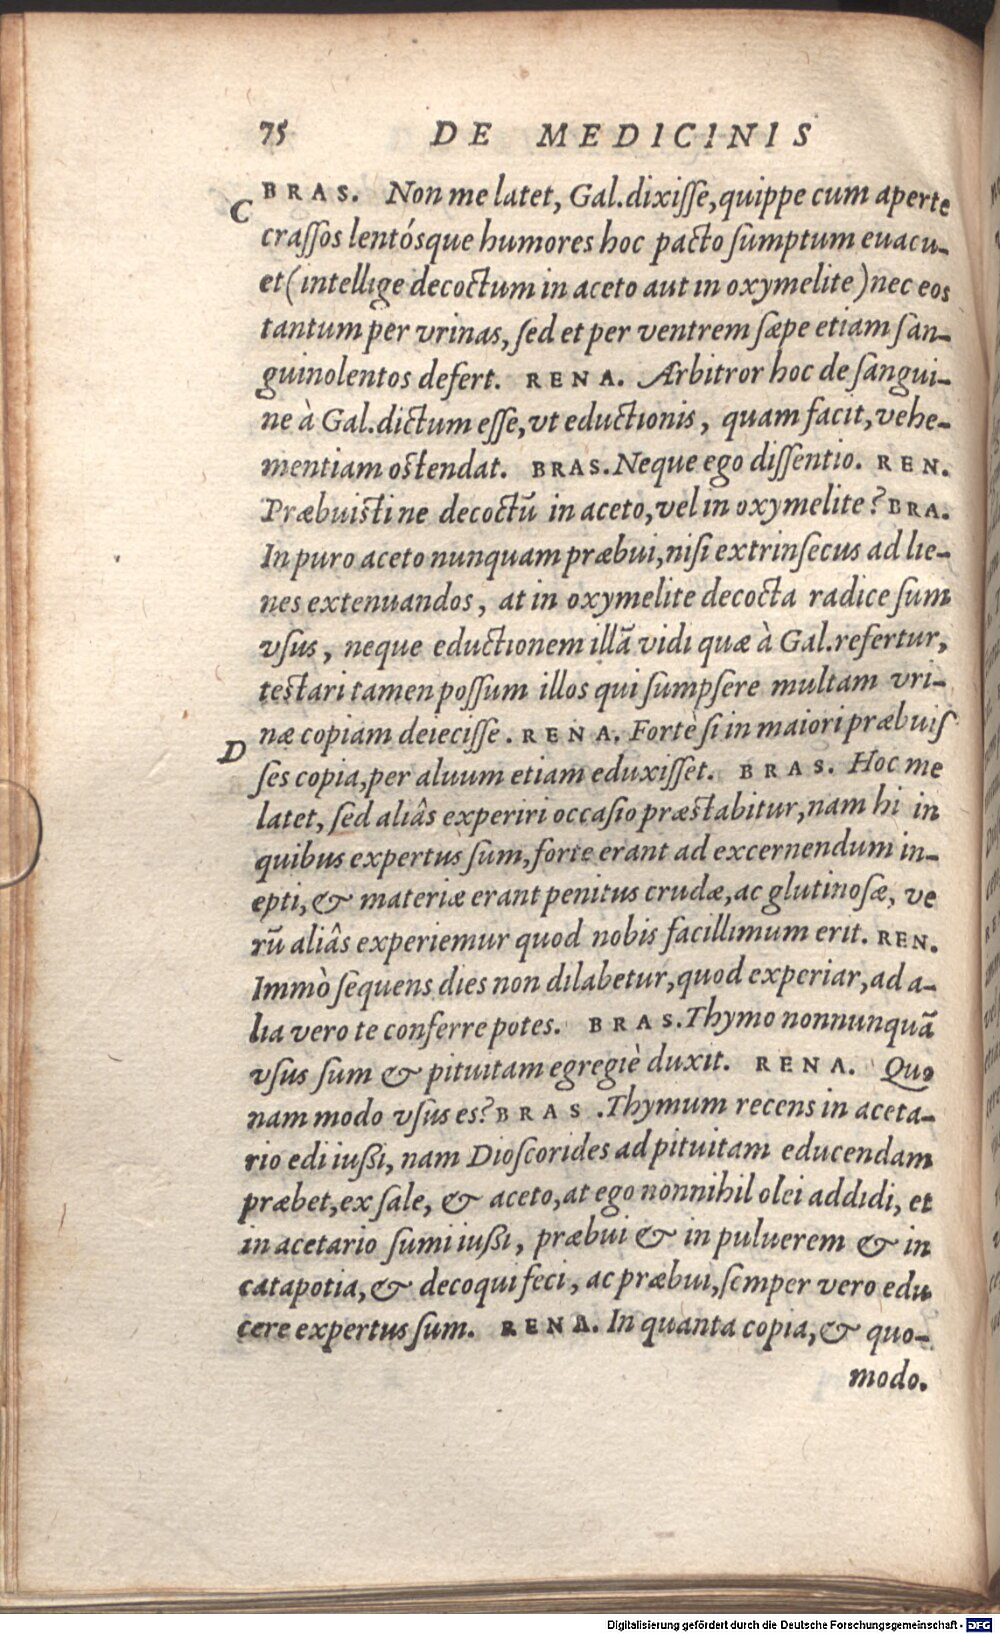 75 DE MEDICINIS
BRAS. Non me latet, Gal. dixisse, quippe cum aperte
C
crassos lentósque humores hoc pacto sumptum euacu-
et (intellige decoctum in aceto aut in oxymelite) nec eos
tantum per vrinas, sed et per ventrem sæpe etiam san-
guinolentos defert. RENA. Arbitror hoc de sangui-
ne à Gal. dictum esse, vt eductionis, quam facit, vehe-
mentiam ostendat. BRAS. Neque ego dissentio. REN.
Præbuisti ne decoctũ in aceto, vel in oxymelite? BRA.
In puro aceto nunquam præbui, nisi extrinsecus ad lie-
nes extenuandos, at in oxymelite decocta radice sum
vsus, neque eductionem illã vidi quæ à Gal. refertur,
testari tamen possum illos qui sumpsere multam vri-
næ copiam deiecisse. RENA. Fortè si in maiori præbuis
D
ses copia, per aluum etiam eduxisset. BRAS. Hoc me
latet, sed aliâs experiri occasio præstabitur, nam hi in
quibus expertus sum, forte erant ad excernendum in-
epti, & materiæ erant penitus crudæ, ac glutinosæ, ve
rũ aliâs experiemur quod nobis facillimum erit. REN.
Immò sequens dies non dilabetur, quod experiar, ad a-
lia vero te conferre potes. BRAS. Thymo nonnunquã
vsus sum & pituitam egregiè duxit. RENA. Quo
nam modo vsus es? BRAS. Thymum recens in aceta-
rio edi iußi, nam Dioscorides ad pituitam educendam
præbet, ex sale, & aceto, at ego nonnihil olei addidi, et
in acetario sumi iußi, præbui & in puluerem & in
catapotia, & decoqui feci, ac præbui, semper vero edu
cere expertus sum. RENA. In quanta copia, & quo-
modo.
Digitalisierung gefördert durch die Deutsche Forschungsgemeinschaft - DFG